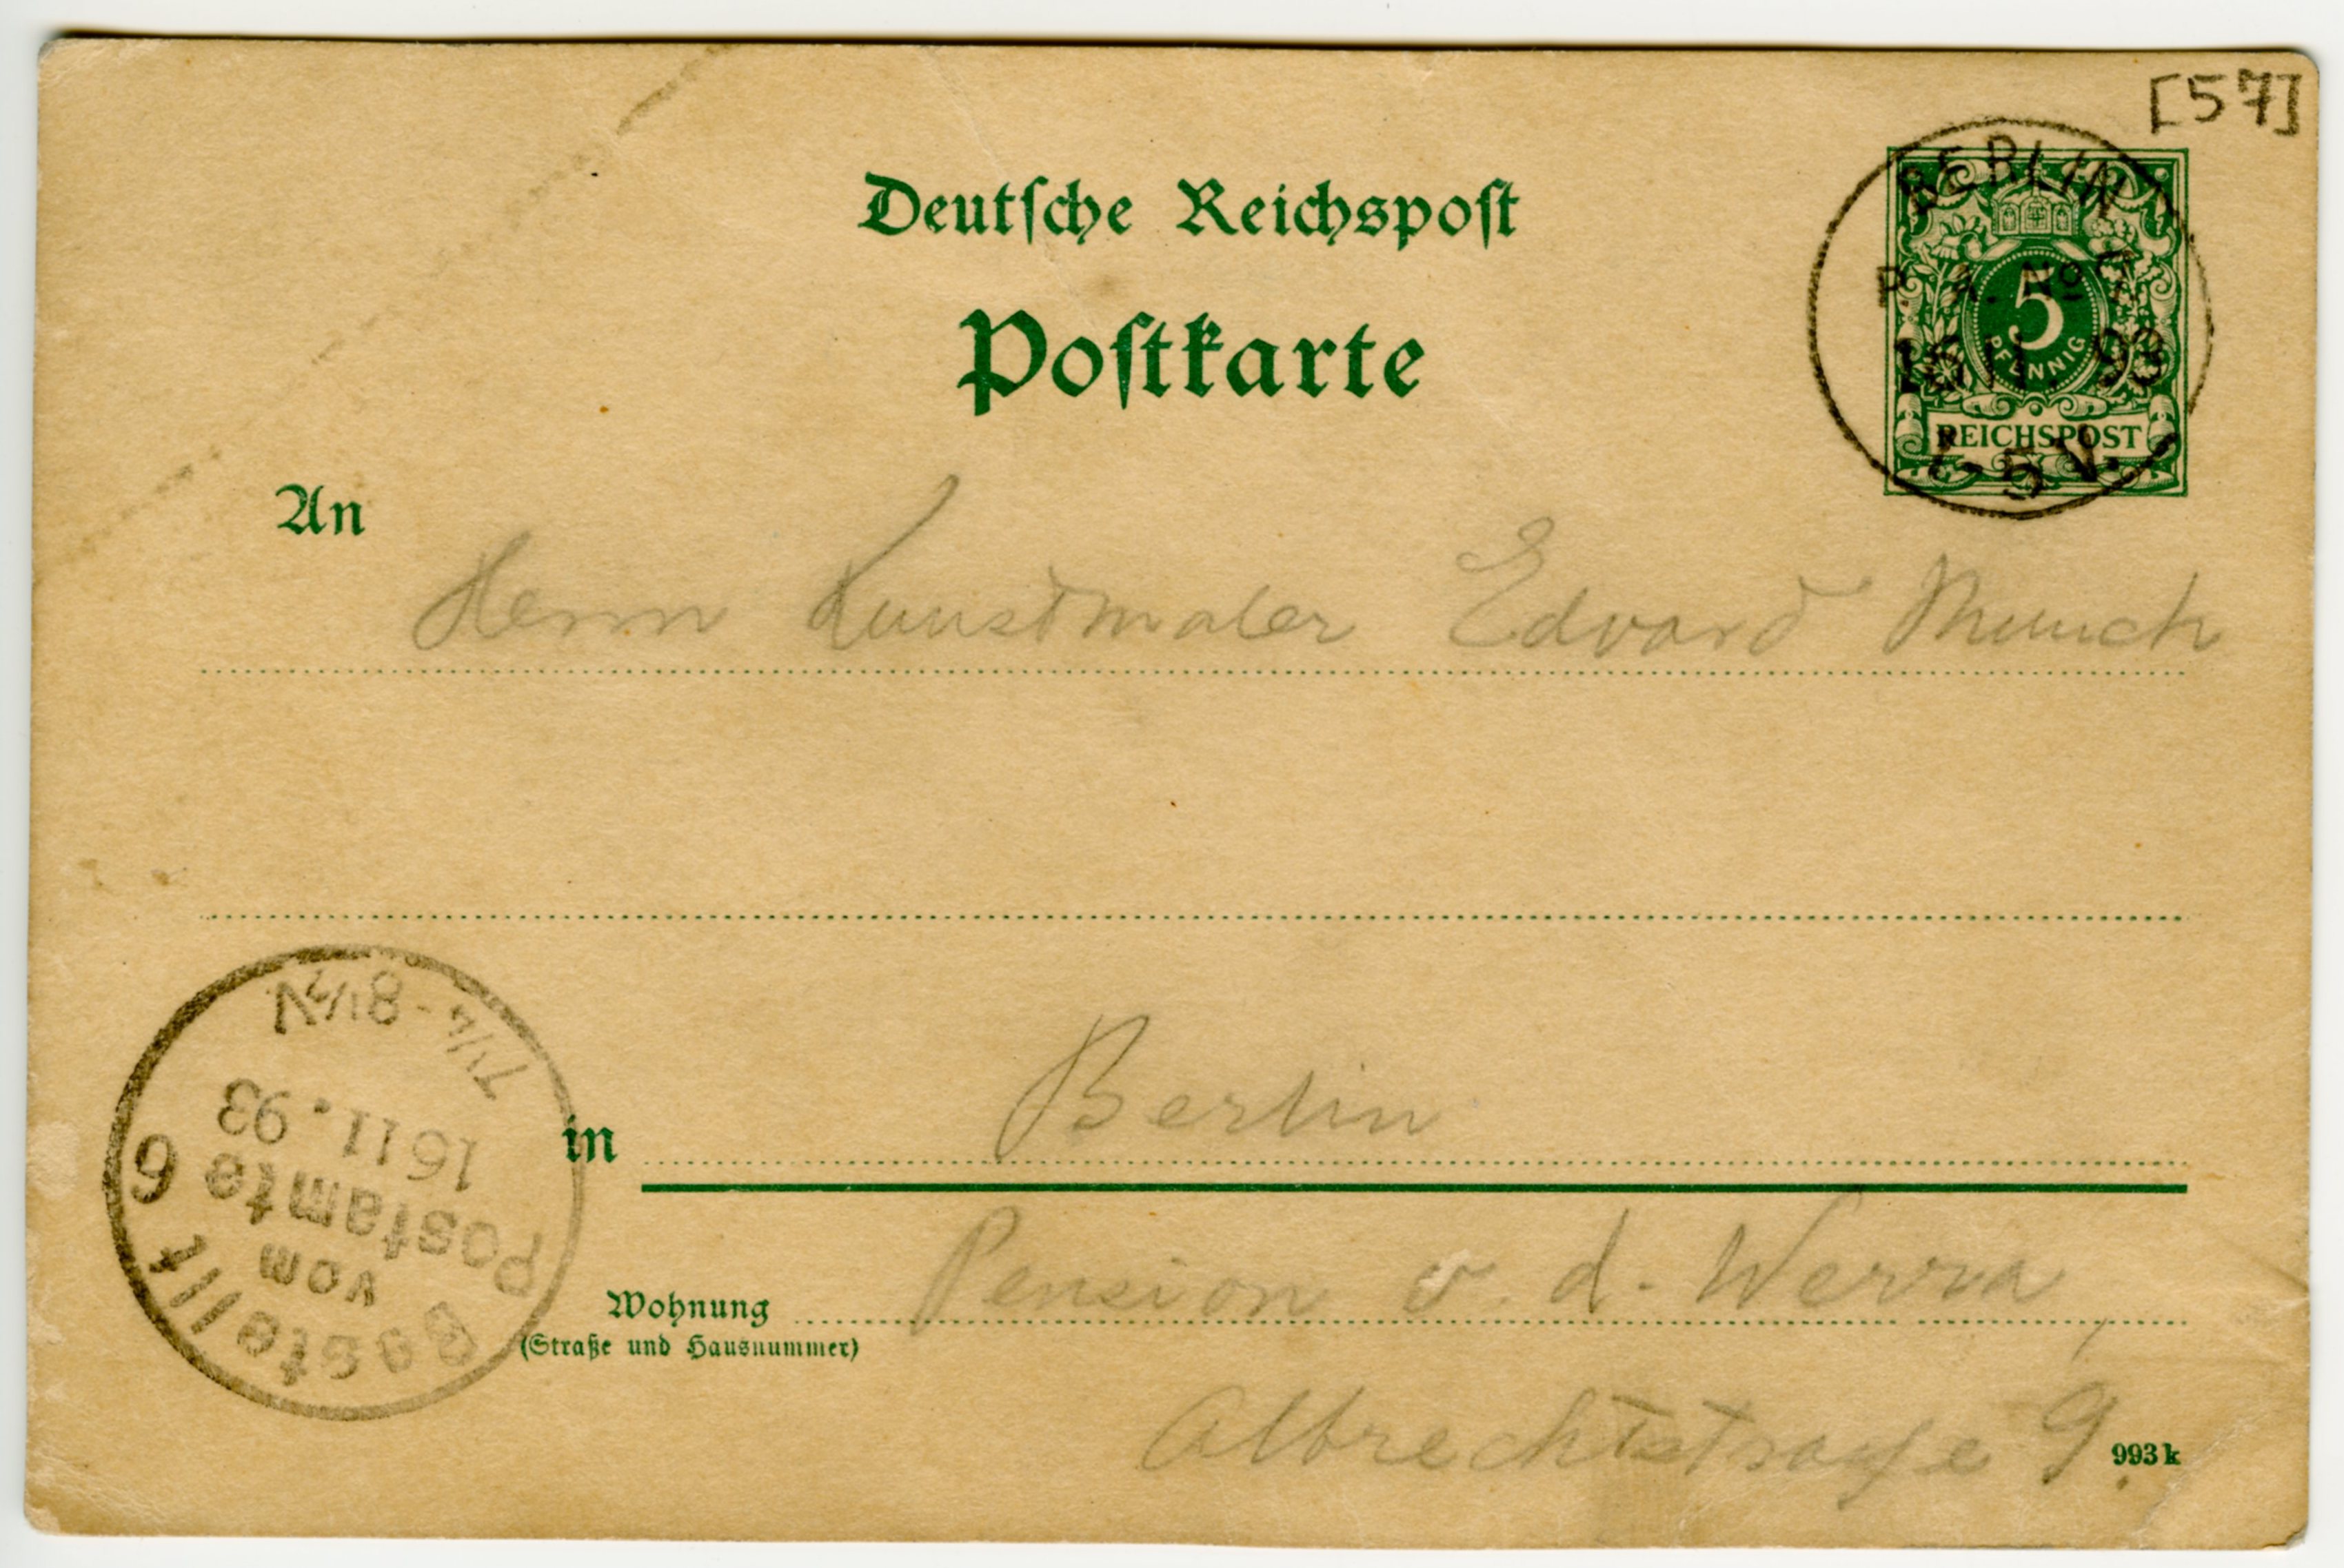 [57]
Deutſche Reichspoſt
Poſtkarte
BERLIN
P. A. No
5
PFENNIG
11. 93
REICHSPOST
5 V.
An
Herrn Kunstmaler Edvard Munch
in Berlin
Wohnung Pension v. d. Werra,
(Straße und Hausnummer)
Albrechtstraße 9.
993 k
Bestellt
vom
Postamte 6
15 11. 93
7¼-8½V